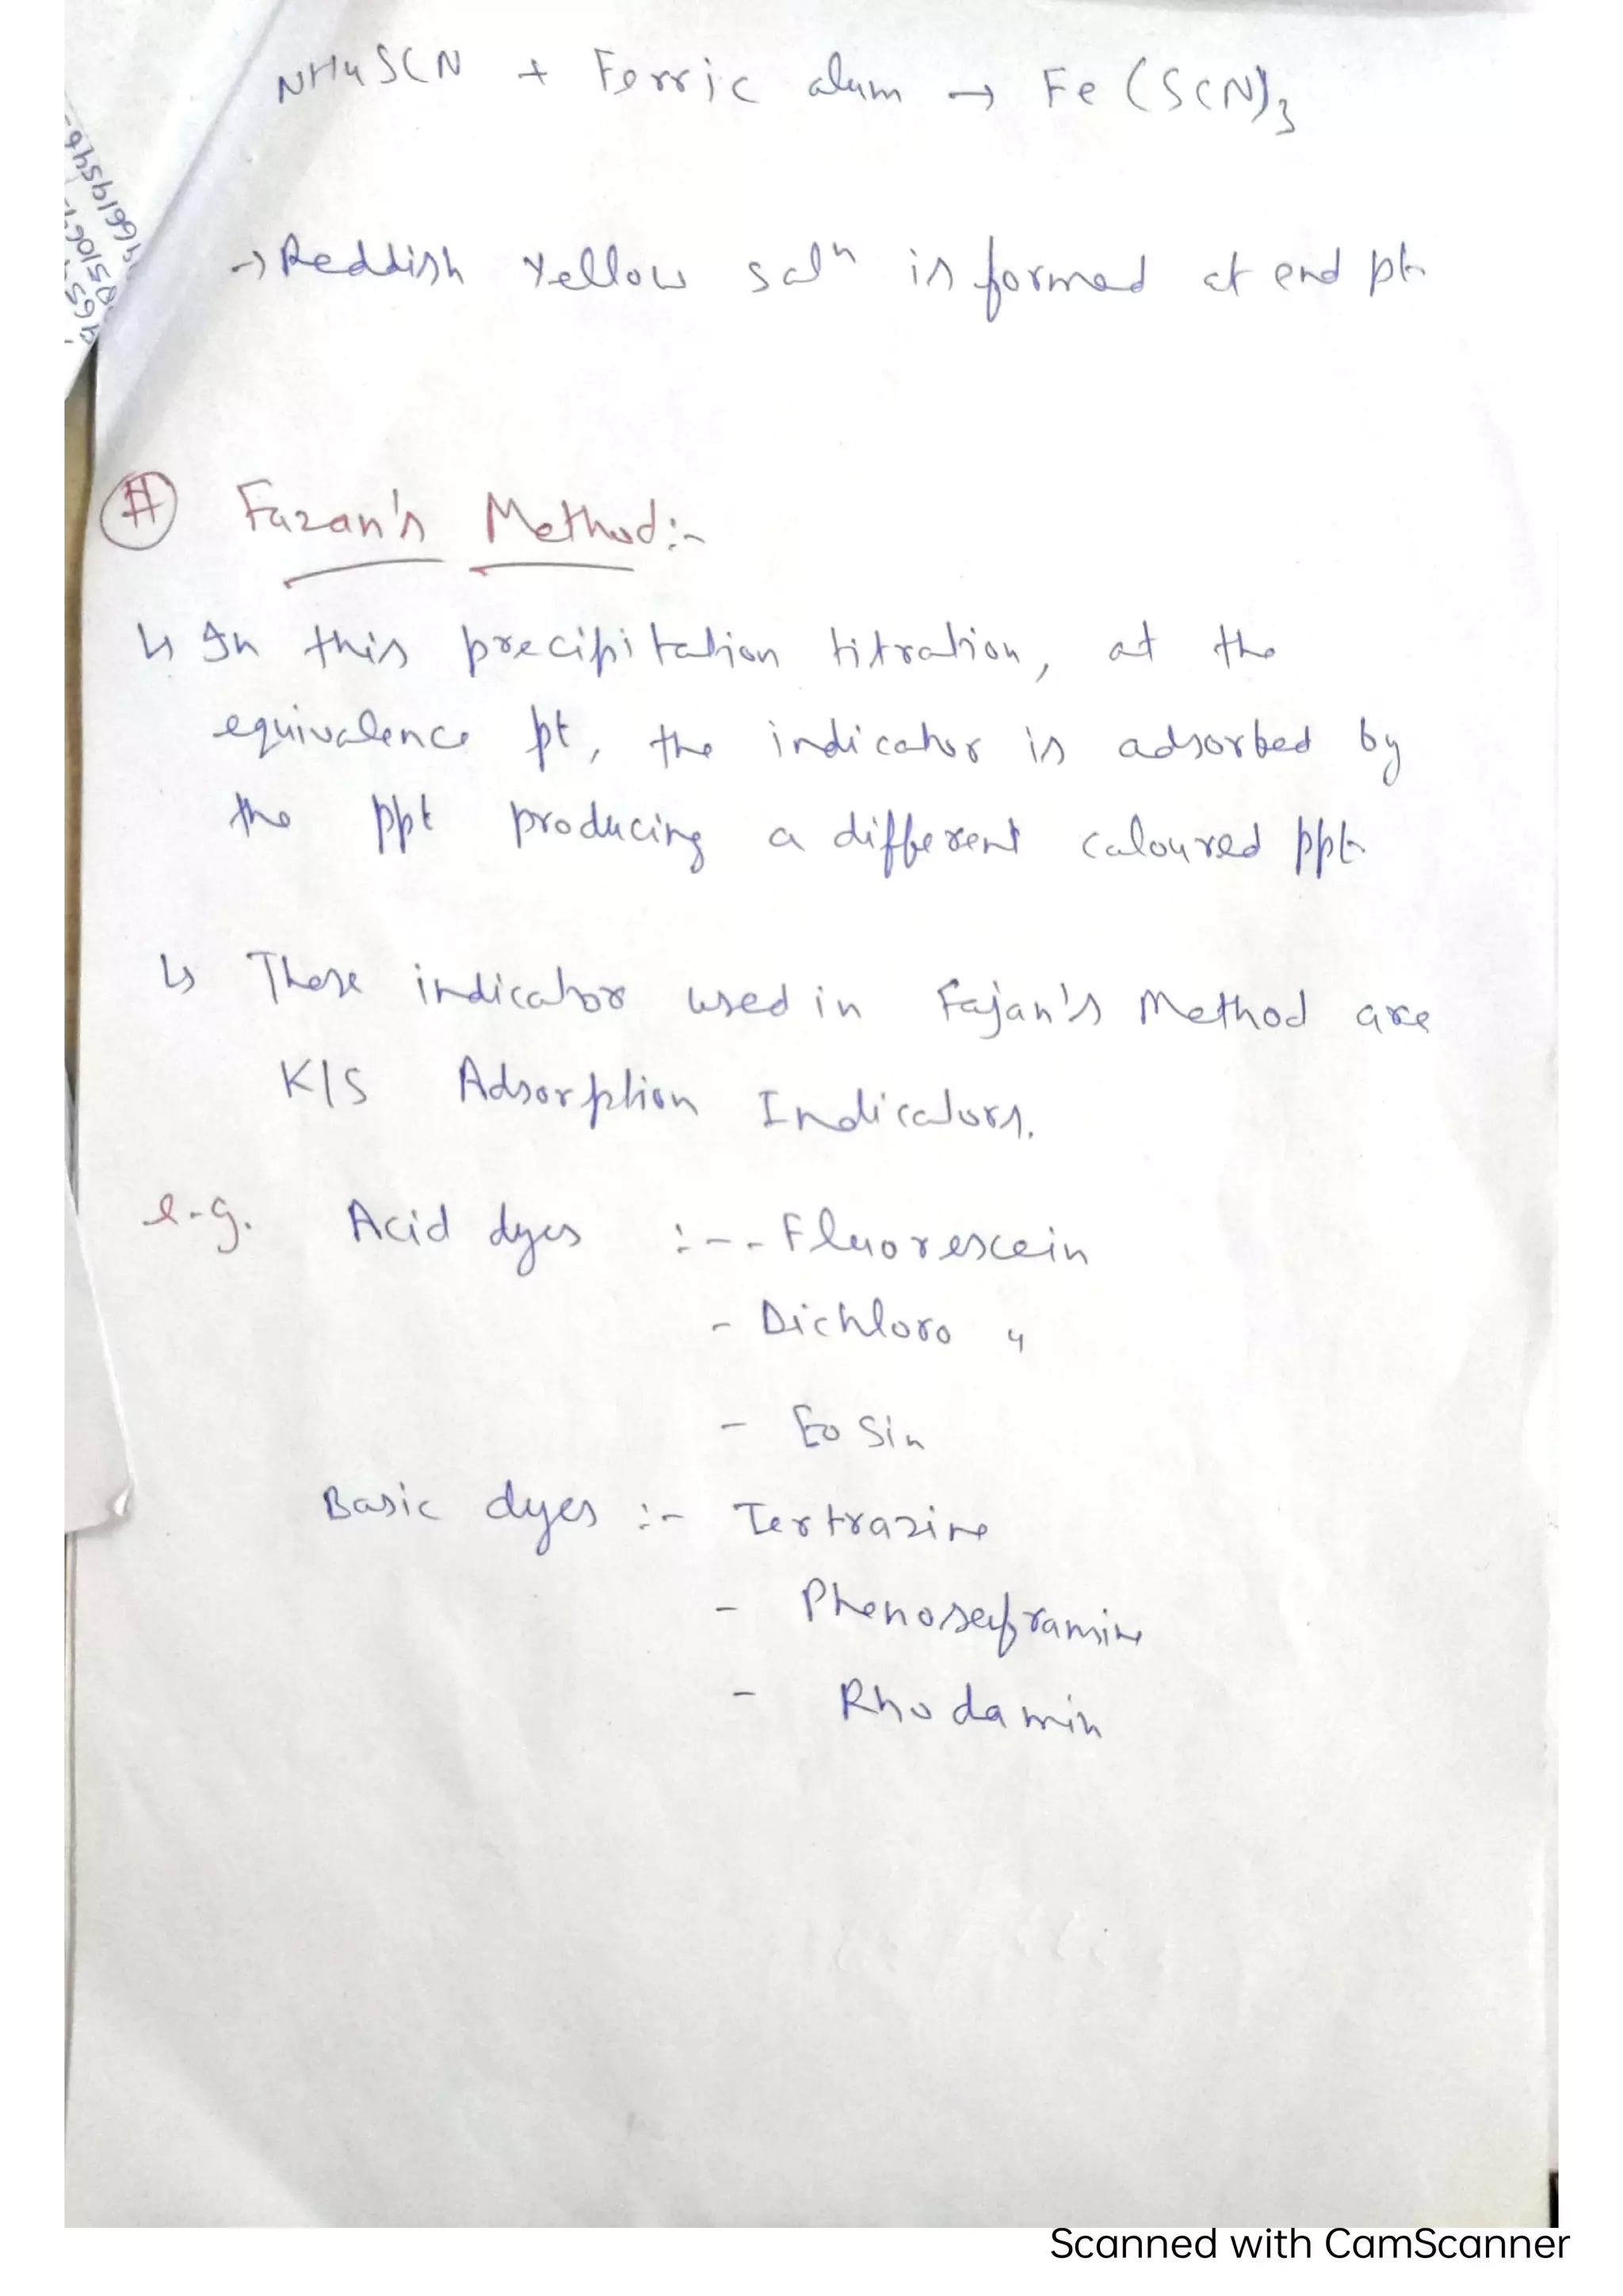 NH4SCN + Ferric alum → Fe(SCN)3
→ Reddish Yellow solⁿ is formed at end pt.
# Fazan's Method:-
↳ In this precipitation titration, at the
equivalence pt, the indicator is adsorbed by
the ppt producing a different coloured ppt.
↳ These indicator used in Fajan's Method are
K/S Adsorption Indicators.
e.g. Acid dyes :- - Fluorescein
- Dichloro "
- Eosin
Basic dyes :- Tertrazine
- Phenosaframine
- Rhodamin
Scanned with CamScanner